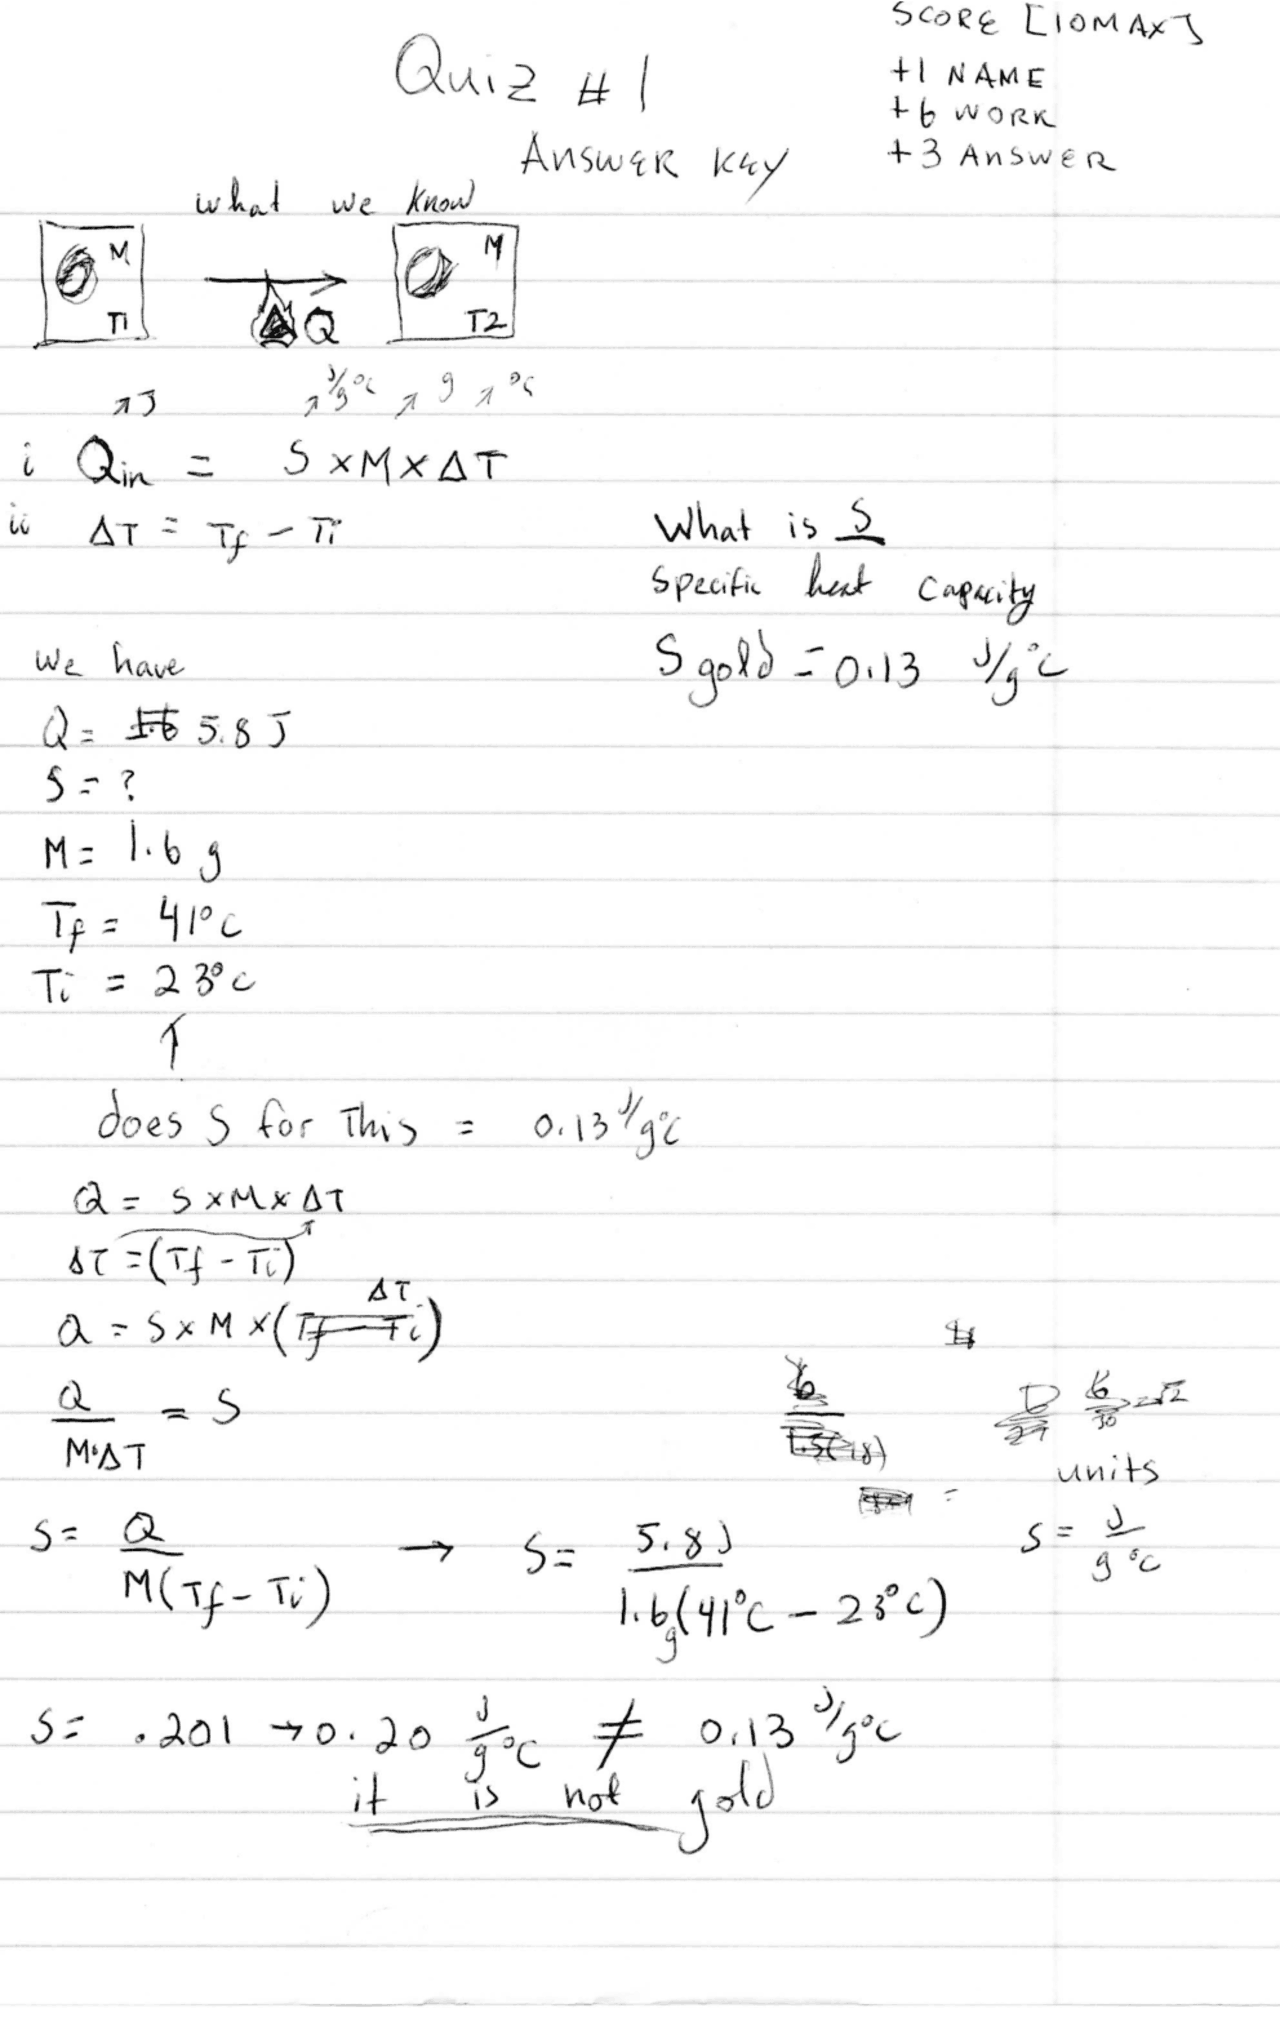 SCORE [10MAX]
+1 NAME
+6 WORK
+3 ANSWER
Quiz #1
ANSWER KEY
what we know
M M
T1 Q T2
J J/g°C g °C
i Qin = S×M×ΔT
ii ΔT = Tf - Ti
What is S
Specific heat capacity
S gold = 0.13 J/g°C
We have
Q = 5.8 J
S = ?
M = 1.6 g
Tf = 41°C
Ti = 23°C
does S for This = 0.13 J/g°C
Q = S×M×ΔT
ΔT = (Tf - Ti)
ΔT
Q = S×M×(Tf - Ti)
Q/M·ΔT = S
units
S = Q/M(Tf - Ti) → S = 5.8J/1.6g(41°C - 23°C) S = J/g °C
S = .201 → 0.20 J/g°C ≠ 0.13 J/g°C
it is not gold